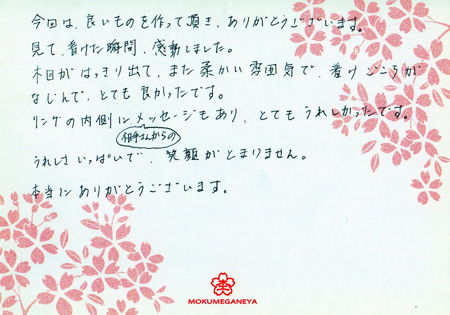 今回は、良いものを作って頂き、ありがとうございます。
見て、着けた瞬間、感動しました。
木目がはっきり出て、また柔かい雰囲気で、着けごころが
なじんで、とても良かったです。
リングの内側にメッセージもあり、とてもうれしかったです。
相手さんからの
うれしさいっぱいで、笑顔がとまりません。
本当にありがとうございます。
MOKUMEGANEYA